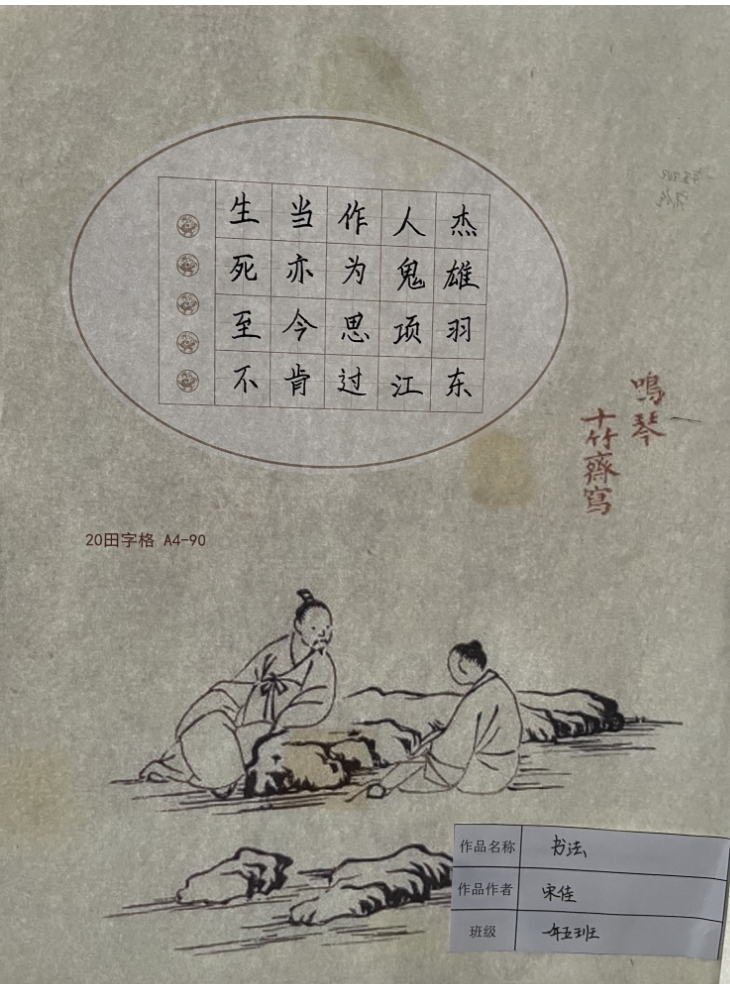 生当作人杰
死亦为鬼雄
至今思项羽
不肯过江东
鳴琴
十竹齋寫
20田字格 A4-90
作品名称 书法
作品作者 宋佳
班级 一年五班